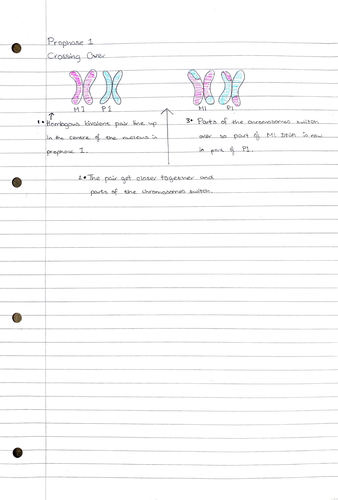 Prophase 1
Crossing Over
M1 P1
M1 P1
1• Homologous bivalent pair line up
in the centre of the nucleus in
prophase 1.
3• Parts of the chromosomes switch
over so part of M1 is now
in part of P1.
2• The pair get closer together and
parts of the chromosomes switch.